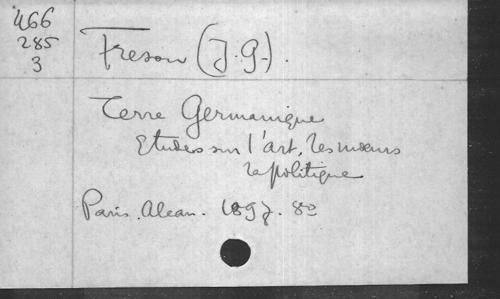 466
285
3
Freson (J. G.).
Terre Germanique
Etudes sur l'art, les mœurs
la politique
Paris. Alcan. 1897. 8º